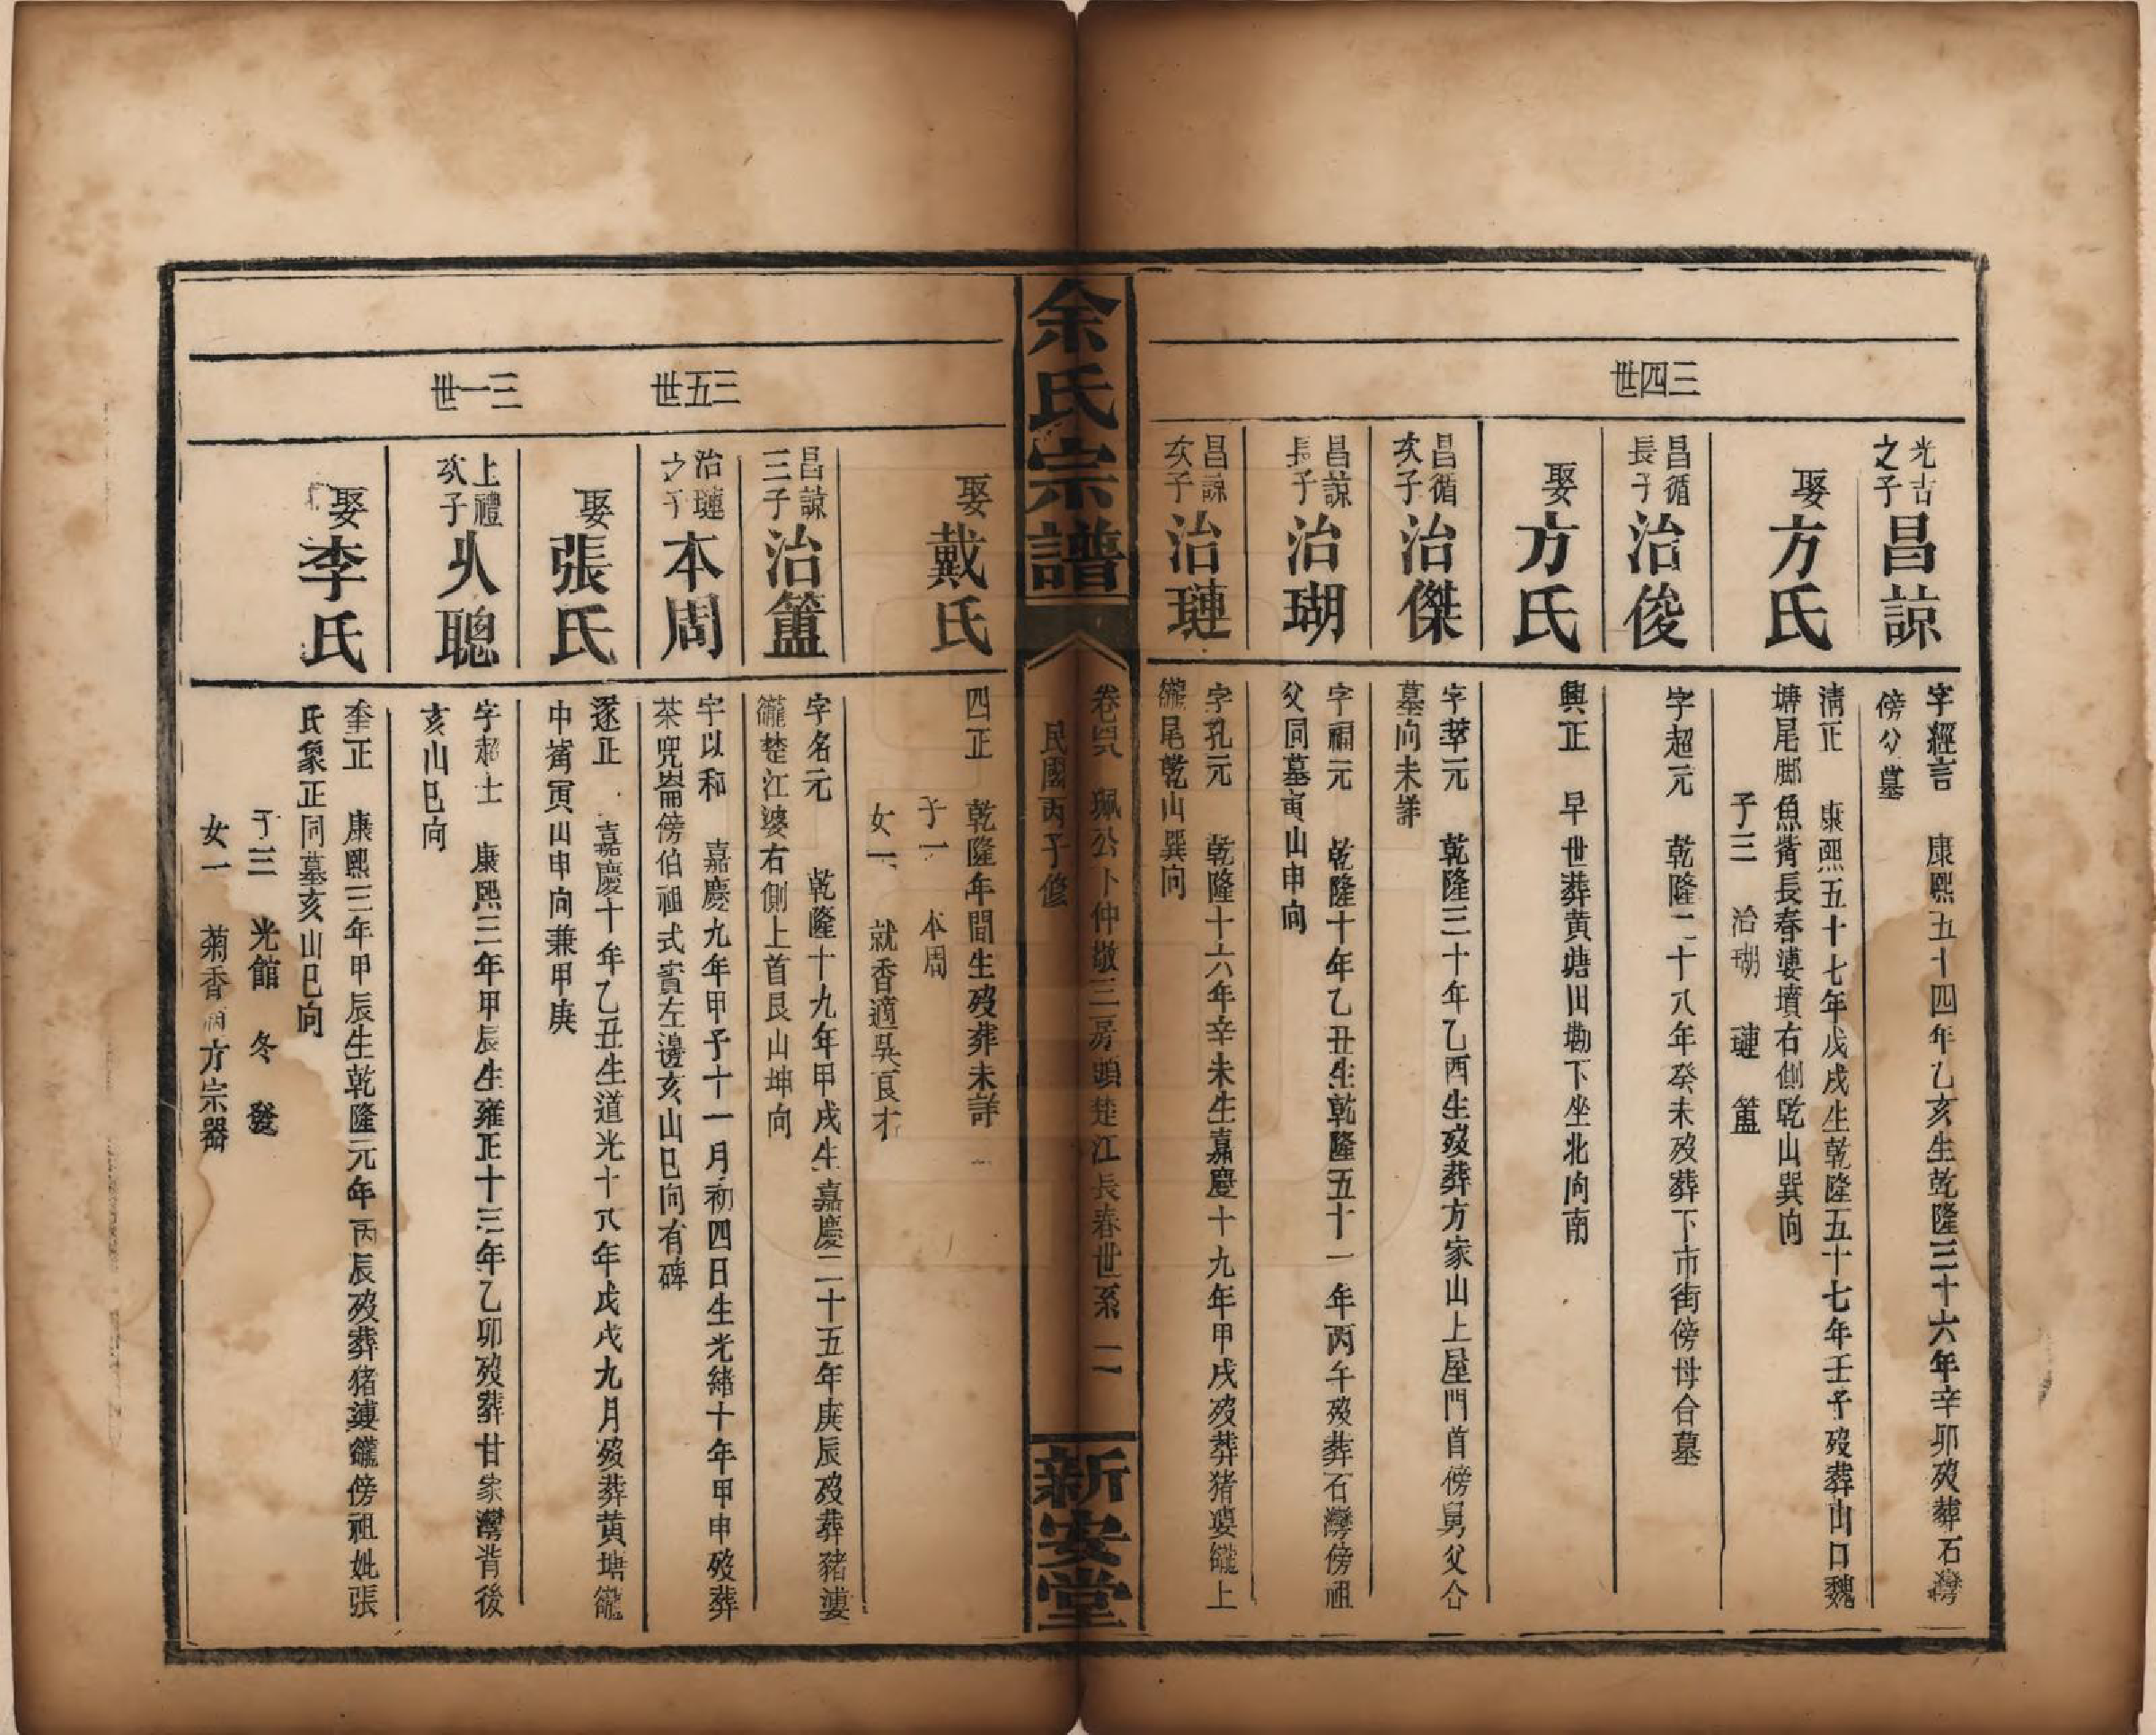 三四世
光古之子
昌諒
字經言 康熙五十四年乙亥生乾隆三十六年辛卯歿葬石灣
傍公墓
娶方氏
清正 康熙五十七年戊戌生乾隆五十七年壬子歿葬山口魏
塘尾脚魚背長春漊墳右側乾山巽向
子三 治瑚 璉 簠
昌循長子
治俊
字超元 乾隆二十八年癸未歿葬下市街傍母合墓
娶方氏
興正 早世葬黄塘田墈下坐北向南
昌循次子
治傑
字莘元 乾隆三十年乙酉生歿葬方家山上屋門首傍舅父仝
墓向未詳
昌諒長子
治瑚
字福元 乾隆十年乙丑生乾隆五十一年丙午歿葬石灣傍祖
父同墓寅山申向
昌諒次子
治璉
字孔元 乾隆十六年辛未生嘉慶十九年甲戌歿葬猪婆巃上
巃尾乾山巽向
余氏宗譜
卷 珮公卜仲敬三房頭楚江長春世系 二
民國丙子修
新安堂
娶戴氏
四正 乾隆年間生歿葬未詳
子一 本周
女一 就香適吳良才
昌諒三子
治簠
字名元 乾隆十九年甲戌生嘉慶二十五年庚辰歿葬豬漊
巃楚江婆右側上首艮山坤向
三五世
治璉之子
本周
字以和 嘉慶九年甲子十一月初四日生光緒十年甲申歿葬
茶兜崙傍伯祖式賓左邊亥山巳向有碑
娶張氏
遂正 嘉慶十年乙丑生道光十八年戊戌九月歿葬黄塘巃
中嵛寅山申向兼甲庚
三一世
上禮次子
从聰
字超士 康熙三年甲辰生雍正十三年乙卯歿葬甘家灣背後
亥山巳向
娶李氏
奎正 康熙三年甲辰生乾隆元年丙辰歿葬猪漊巃傍祖妣張
氏象正同墓亥山巳向
子三 光館 冬 發
女一 菊香適方宗器